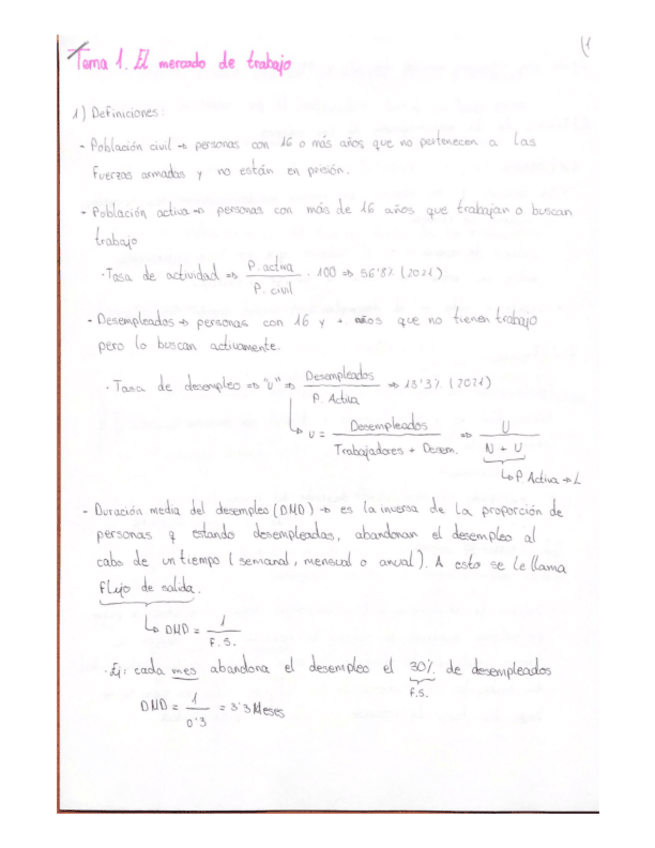 (1
Tema 1. El mercado de trabajo
1) Definiciones:
- Población civil → personas con 16 o más años que no pertenecen a las
fuerzas armadas y no están en prisión.
- Población activa → personas con más de 16 años que trabajan o buscan
trabajo
· Tasa de actividad ⇒ P. activa / P. civil · 100 ⇒ 56'8% (2021)
- Desempleados → personas con 16 y + años que no tienen trabajo
pero lo buscan activamente.
· Tasa de desempleo ⇒ "u" ⇒ Desempleados / P. Activa ⇒ 13'3% (2021)
↳ u = Desempleados / Trabajadores + Desem. ⇒ U / N + U
↳ P Activa ⇒ L
- Duración media del desempleo (DMD) → es la inversa de la proporción de
personas q estando desempleadas, abandonan el desempleo al
cabo de un tiempo (semanal, mensual o anual). A esto se le llama
flujo de salida.
↳ DMD = 1 / F.S.
· Ej: cada mes abandona el desempleo el 30% de desempleados
F.S.
DMD = 1 / 0'3 = 3'3 Meses